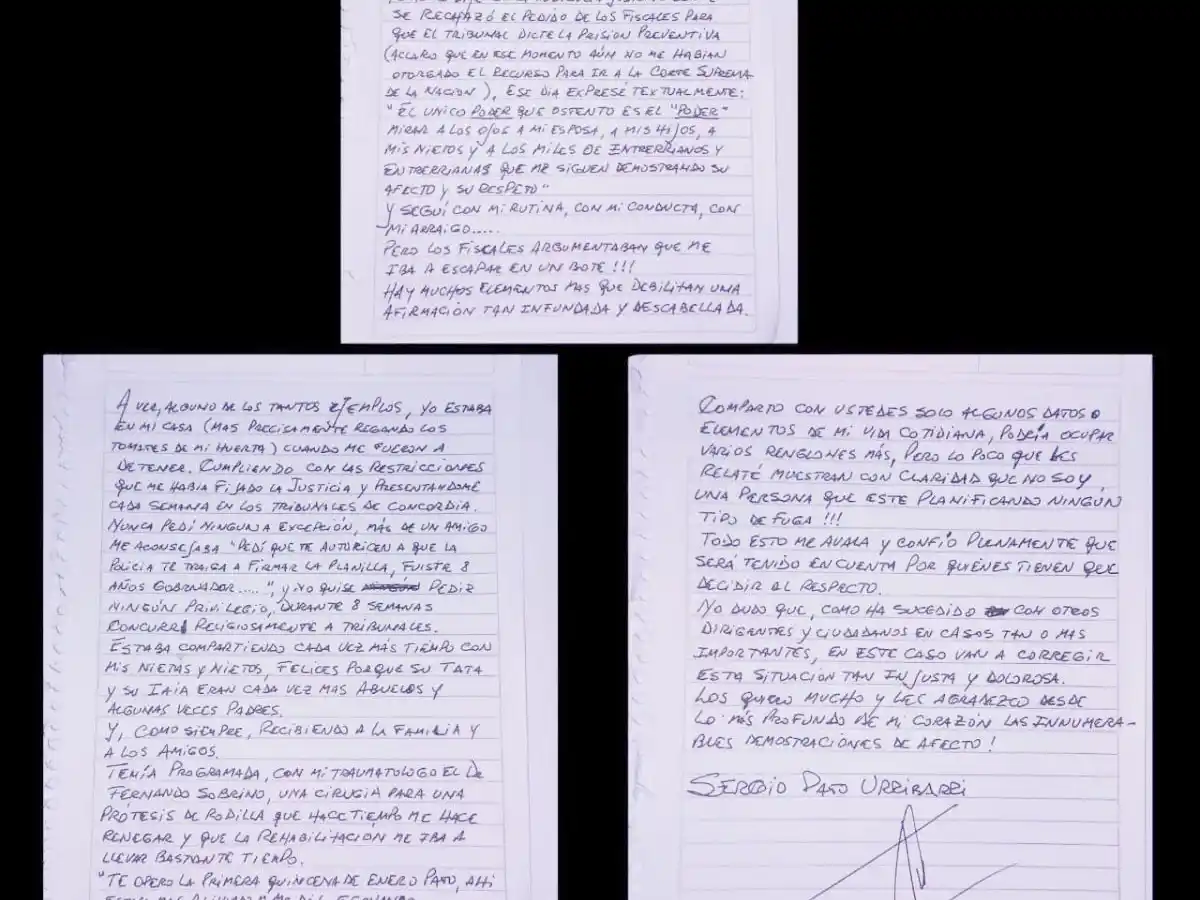 SE RECHAZÓ EL PEDIDO DE LOS FISCALES PARA
QUE EL TRIBUNAL DICTE LA PRISION PREVENTIVA
(ACLARO QUE EN ESE MOMENTO AÚN NO ME HABIAN
OTORGADO EL RECURSO PARA IR A LA CORTE SUPREMA
DE LA NACION), ESE DIA EXPRESÉ TEXTUALMENTE:
"EL UNICO PODER QUE OSTENTO ES EL "PODER"
MIRAR A LOS OJOS A MI ESPOSA, A MIS HIJOS, A
MIS NIETOS Y A LOS MILES DE ENTRERRIANOS Y
ENTRERRIANAS QUE ME SIGUEN DEMOSTRANDO SU
AFECTO Y SU RESPETO"
Y SEGUÍ CON MI RUTINA, CON MI CONDUCTA, CON
MI ARRAIGO.....
PERO LOS FISCALES ARGUMENTABAN QUE ME
IBA A ESCAPAR EN UN BOTE !!!
HAY MUCHOS ELEMENTOS MAS QUE DEBILITAN UNA
AFIRMACIÓN TAN INFUNDADA Y DESCABELLADA.
A VER, ALGUNO DE LOS TANTOS EJEMPLOS, YO ESTABA
EN MI CASA (MAS PRECISAMENTE REGANDO LOS
TOMATES DE MI HUERTA) CUANDO ME FUERON A
DETENER. CUMPLIENDO CON LAS RESTRICCIONES
QUE ME HABIA FIJADO LA JUSTICIA Y PRESENTANDOME
CADA SEMANA EN LOS TRIBUNALES DE CONCORDIA.
NUNCA PEDÍ NINGUNA EXCEPCIÓN, MÁS DE UN AMIGO
ME ACONSEJABA "PEDÍ QUE TE AUTORICEN A QUE LA
POLICIA TE TRAIGA A FIRMAR LA PLANILLA, FUISTE 8
AÑOS GOBERNADOR.....", Y NO QUISE PEDIR
NINGÚN PRIVILEGIO, DURANTE 8 SEMANAS
CONCURRI RELIGIOSAMENTE A TRIBUNALES.
ESTABA COMPARTIENDO CADA VEZ MÁS TIEMPO CON
MIS NIETAS Y NIETOS, FELICES PORQUE SU TATA
Y SU IAIA ERAN CADA VEZ MAS ABUELOS Y
ALGUNAS VECES PADRES.
Y, COMO SIEMPRE, RECIBIENDO A LA FAMILIA Y
A LOS AMIGOS.
TENÍA PROGRAMADA, CON MI TRAUMATOLOGO EL DR
FERNANDO SOBRINO, UNA CIRUGIA PARA UNA
PRÓTESIS DE RODILLA QUE HACE TIEMPO ME HACE
RENEGAR Y QUE LA REHABILITACIÓN ME IBA A
LLEVAR BASTANTE TIEMPO.
"TE OPERO LA PRIMERA QUINCENA DE ENERO PATO, AHI
COMPARTO CON USTEDES SOLO ALGUNOS DATOS O
ELEMENTOS DE MI VIDA COTIDIANA, PODRÍA OCUPAR
VARIOS RENGLONES MÁS, PERO LO POCO QUE LES
RELATÉ MUESTRAN CON CLARIDAD QUE NO SOY
UNA PERSONA QUE ESTE PLANIFICANDO NINGÚN
TIPO DE FUGA !!!
TODO ESTO ME AVALA Y CONFÍO PLENAMENTE QUE
SERÁ TENIDO EN CUENTA POR QUIENES TIENEN QUE
DECIDIR AL RESPECTO.
NO DUDO QUE, COMO HA SUCEDIDO CON OTROS
DIRIGENTES Y CIUDADANOS EN CASOS TAN O MAS
IMPORTANTES, EN ESTE CASO VAN A CORREGIR
ESTA SITUACIÓN TAN INJUSTA Y DOLOROSA.
LOS QUIERO MUCHO Y LES AGRADEZCO DESDE
LO MÁS PROFUNDO DE MI CORAZÓN LAS INNUMERA-
BLES DEMOSTRACIONES DE AFECTO !
SERGIO PATO URRIBARRI